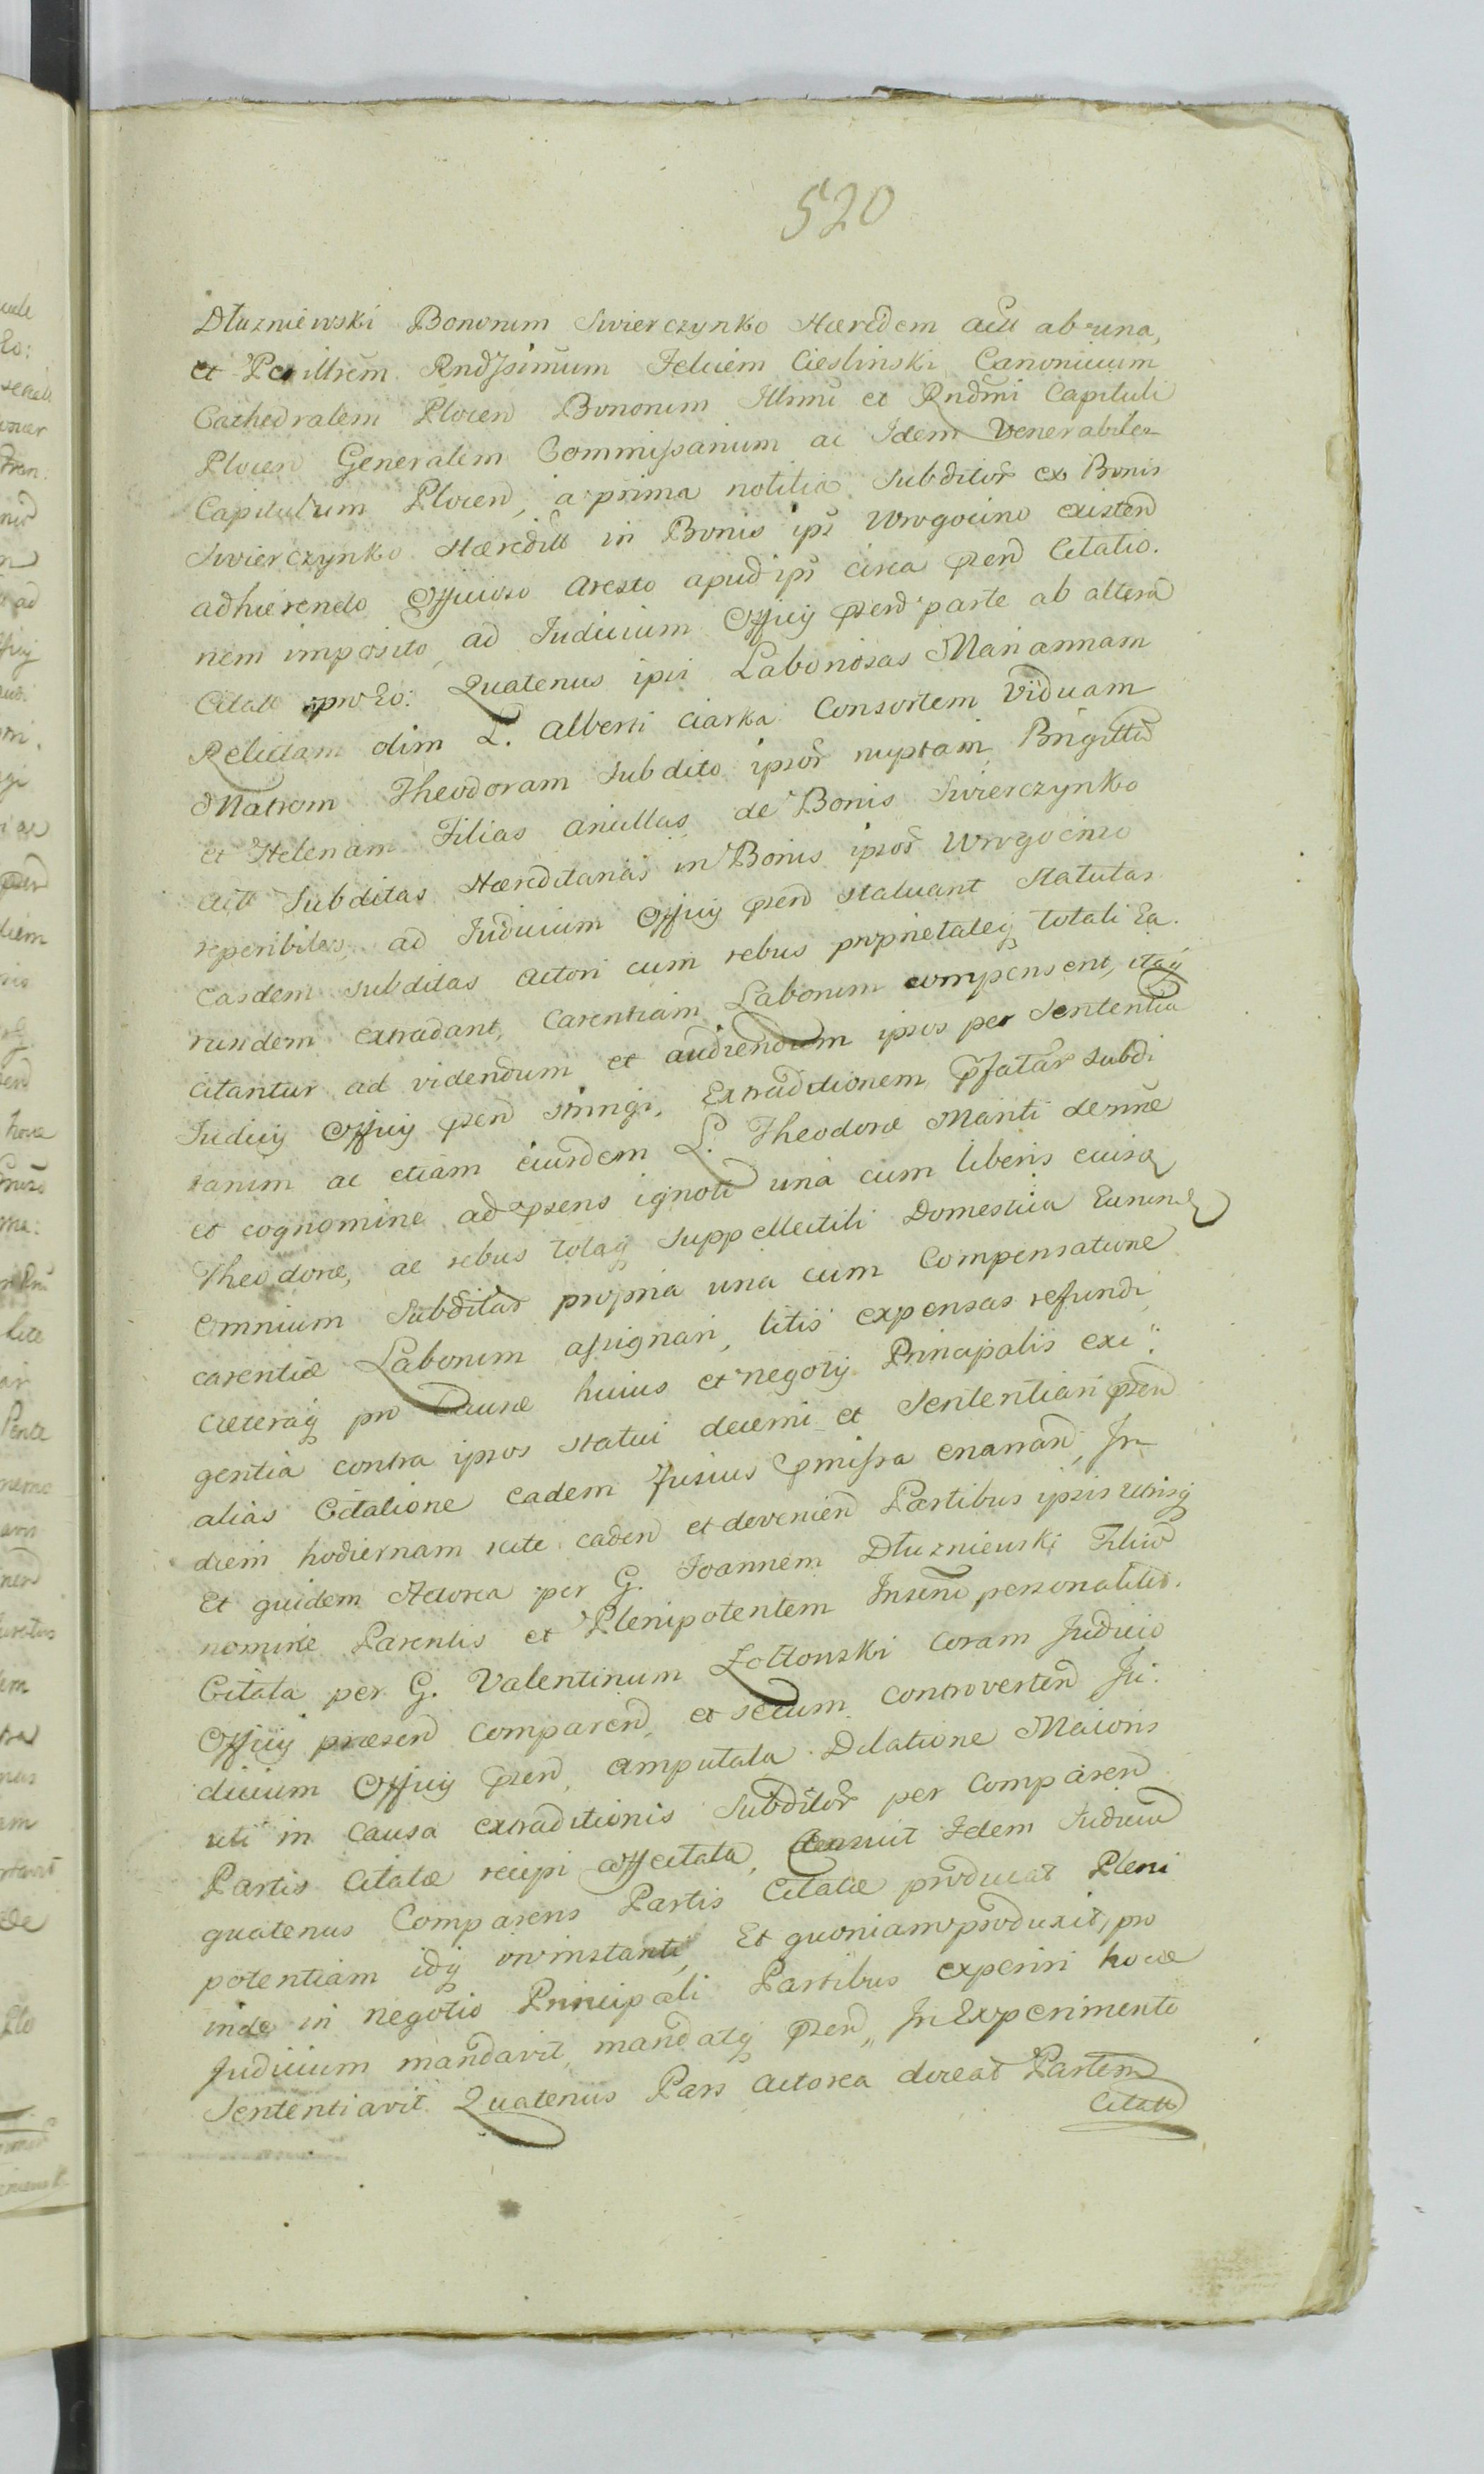 520
Dłuzniewski Bonorum Swierczynko Hæredem actt ab una,
et Perillrem Rndssimum Felicem Cieslinski Canonicum
Cathedralem Plocen Bonorum Illmi et Rndmi Capituli
Plocen Generalem Commissarium ac Idem Venerabile
Capitulum Plocen, a prima notitia Subditor ex Bonis
Swierczynko Hæreditt in Bonis ips Wrogocino existen
adhærendo Officioso Aresto apud ips circa psen Citatio.
nem imposito, ad Iudicium Officij psen parte ab altera
Citatt pro Eo: Quatenus ipsi Laboriosas Mariannam
Relictam olim L. Alberti Ciarka Consortem Viduam
Matrem Theodoram Subdito ipsor nuptam, Brigittã
et Helenam Filias ancillas de Bonis Swierczynko
actt Subditas Hæreditarias in Bonis ipsor Wrogocino
reperibiles, ad Iudicium Officij psen statuant statutas
easdem subditas actori cum rebus proprietateq totali Ea.
rundem extradant, Carentiam Laborum compensent, itaq
citantur ad videndum et audiendum ipsos per Sententia
Iudicij Officij psen stringi, Extraditionem pfatar Subdi
tarum ac etiam eiusdem L. Theodoræ Mariti de nne
et cognomine ad psens ignoti una cum liberis eiusd
Theodoræ, ac rebus totaq suppellectili Domestica Earund
omnium Subditar propria una cum Compensatione
carentiæ Laborum assignari, litis expensas refundi,
cæteraq pro Causæ huius et negotij Principalis exi:
gentia contra ipsos statui decerni et Sententiari psen
alias Citatione eadem fusius pmissa enarran, In
diem hodiernam rite caden et devenien Partibus ipsis utrisq
Et quidem Actorea per G. Joannem Dłuzniewski Filiũ
nomine Parentis et Plenipotentem Insimẽ personaliter.
Citata per G. Valentinum Zołtowski Coram Judicio
Officij præsen Comparen, et secum Controverten Ju:
dicium Officij psen, amputata Dilatione Maioris
uti in causa extraditionis Subditor per Comparen
Partis Citatæ recipi affectata, Censuit Idem Iudiciũ
quatenus Comparens Partis Citatæ producat Pleni
potentiam idq in instanti, Et quoniam produxit, pro
inde in negotio Principali Partibus experiri hocce
Judicium mandavit, mandatq psen, In Experimento
Sententiavit Quatenus Pars Actorea doceat Partem
Citatt